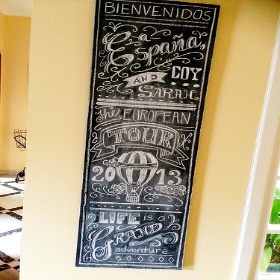 BIENVENIDOS
a
España,
AND COY
SARAH
the EUROPEAN
TOUR
2013
LIFE is a
GRAND
adventure